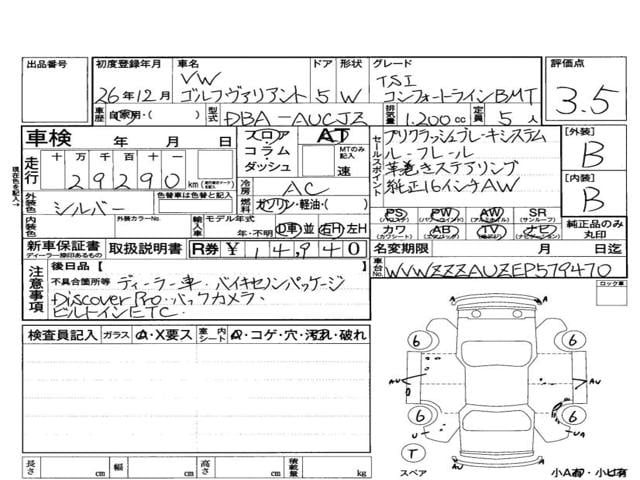 出品番号 初度登録年月 車名 ドア 形状 グレード 評価点
26年12月 VW ゴルフヴァリアント 5 W TSI コンフォートラインBMT 3.5
車歴 自家用・( ) 型式 DBA-AUCJZ 排気量 1.200cc 定員 5人
車検 年 月 日
フロア AT
コラム MTのみ記入
ダッシュ 速
走行 十万千百十一
29290 km
冷房 AC
燃料 ガソリン・軽油・( )
外装色 シルバー 色替車は色替と記入
内装色 外装カラーNo. 輸入車 モデル年式 年・不明 D車・並 右H・左H
セールスポイント
プリクラッシュブレーキシステム
ルーフレール
革巻きステアリング
純正16インチAW
PS PW AW SR
(パワステ) (パワーウインドー) (アルミホイル) (サンルーフ)
カワ AB TV ナビ
(カワシート) (エアバッグ) (テレビ) (ナビゲーション)
【外装】
B
【内装】
B
純正品のみ丸印
新車保証書 取扱説明書 R券 ¥ 14,940
ディーラー捺印あるもの
名変期限 月 日迄
車台No. WVWZZZAUZEP579470
現在色を記入→
注意事項
後日品【 】
不具合箇所等 ディーラー車・バイキセノンパッケージ
Discover Pro・バックカメラ・
ビルトインETC・
ロック車
検査員記入 ガラス A・X要ス 室内シート A・コゲ・穴・汚れ・破れ
6 6
AU AU
6 6
U UA
T
スペア
小A有・小U有
長さ cm 幅 cm 高さ cm 積載量 kg